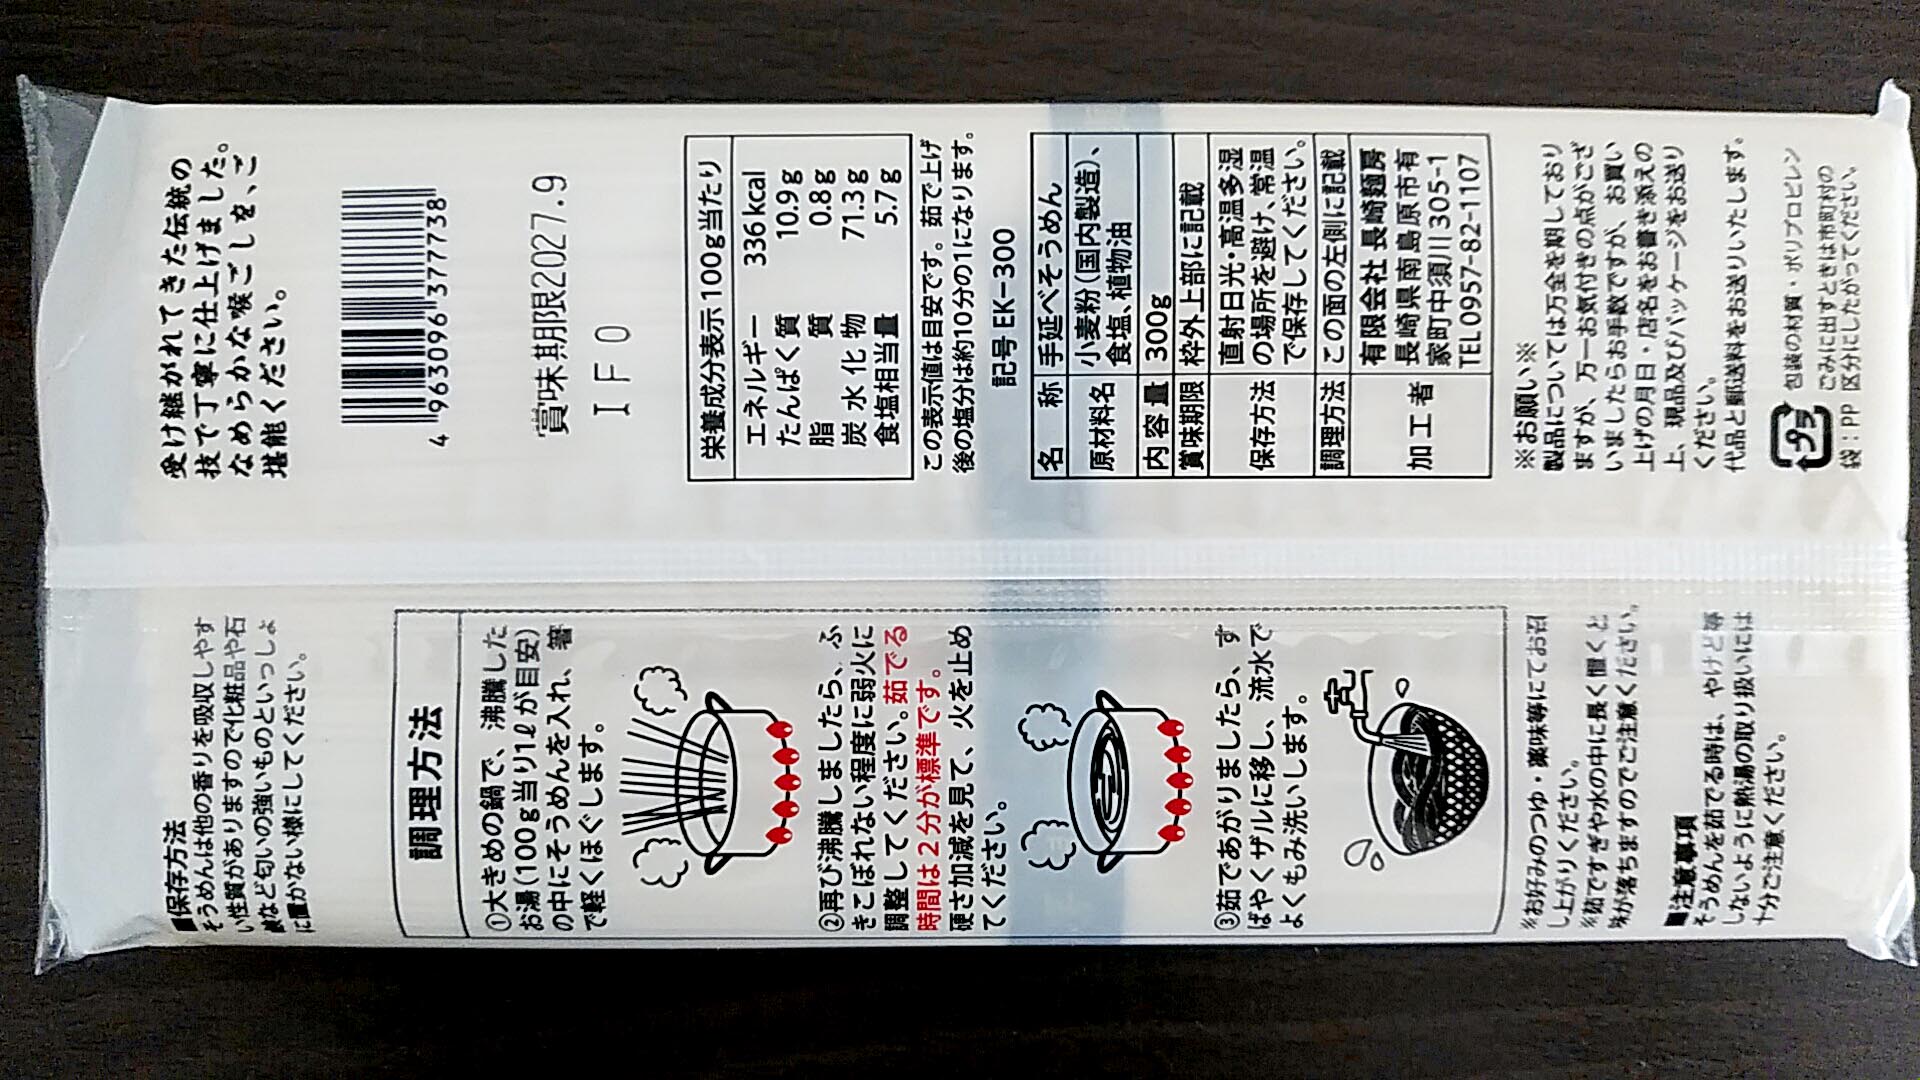 ■保存方法
そうめんは他の香りを吸収しやす
い性質がありますので化粧品や石
鹸など匂いの強いものといっしょ
に置かない様にしてください。
調理方法
①大きめの鍋で、沸騰した
お湯(100g当り1ℓが目安)
の中にそうめんを入れ、箸
で軽くほぐします。
②再び沸騰しましたら、ふ
きこぼれない程度に弱火に
調整してください。茹でる
時間は2分が標準です。
硬さ加減を見て、火を止め
てください。
③茹であがりましたら、す
ばやくザルに移し、流水で
よくもみ洗いします。
※お好みのつゆ・薬味等にてお召
し上がりください。
※茹ですぎや水の中に長く置くと
味が落ちますのでご注意ください。
■注意事項
そうめんを茹でる時は、やけど等
しないように熱湯の取り扱いには
十分ご注意ください。
受け継がれてきた伝統の
技で丁寧に仕上げました。
なめらかな喉ごしを、ご
堪能ください。
4 963096 377738
賞味期限2027.9
IFO
栄養成分表示100g当たり
エネルギー 336kcal
たんぱく質 10.9g
脂質 0.8g
炭水化物 71.3g
食塩相当量 5.7g
この表示値は目安です。茹で上げ
後の塩分は約10分の1になります。
記号 EK-300
名称 手延べそうめん
原材料名 小麦粉(国内製造)、
食塩、植物油
内容量 300g
賞味期限 枠外上部に記載
保存方法 直射日光・高温多湿
の場所を避け、常温
で保存してください。
調理方法 この面の左側に記載
加工者 有限会社 長崎麺房
長崎県南島原市有
家町中須川305-1
TEL0957-82-1107
※お願い※
製品については万全を期しており
ますが、万一お気付きの点がござ
いましたらお手数ですが、お買い
上げの月日・店名をお書き添えの
上、現品及びパッケージをお送り
ください。
代品と郵送料をお送りいたします。
プラ
包装の材質・ポリプロピレン
ごみに出すときは市町村の
袋:PP 区分にしたがってください。